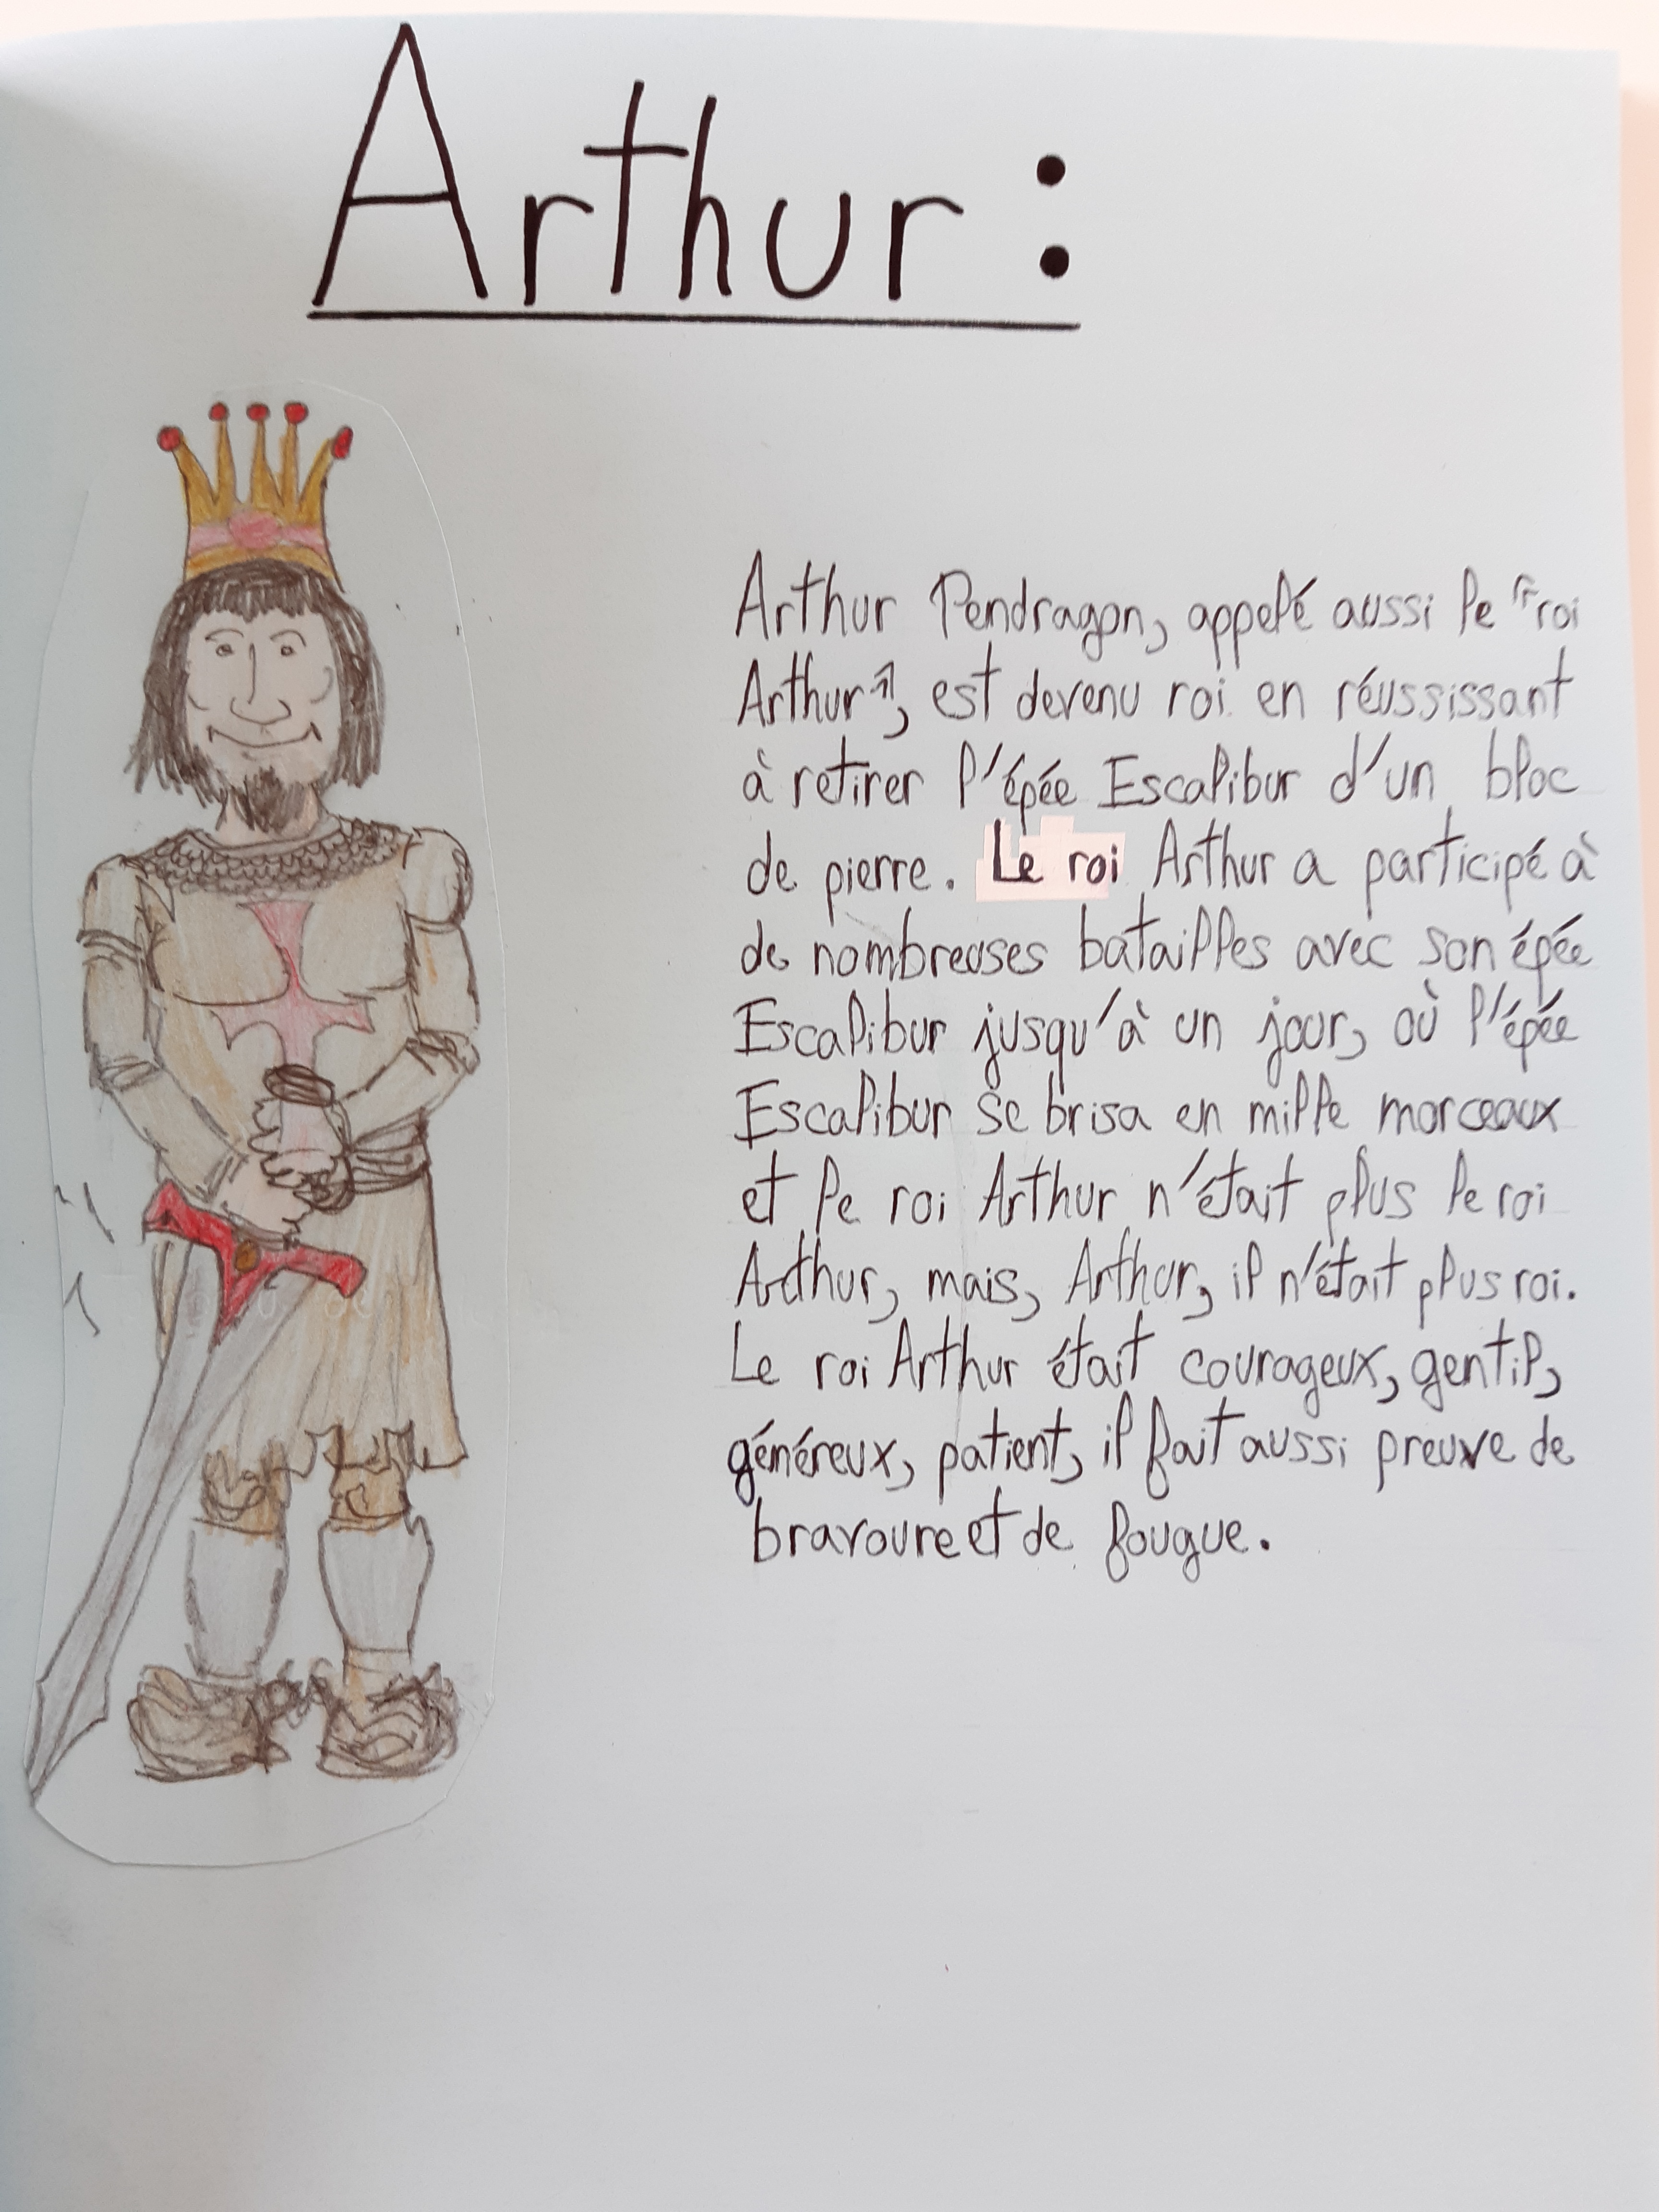 Arthur :
Arthur Pendragon, appelé aussi le "roi
Arthur", est devenu roi en réussissant
à retirer l'épée Escalibur d'un bloc
de pierre. Le roi Arthur a participé à
de nombreuses batailles avec son épée
Escalibur jusqu'à un jour, où l'épée
Escalibur se brisa en mille morceaux
et le roi Arthur n'était plus le roi
Arthur, mais, Arthur, il n'était plus roi.
Le roi Arthur était courageux, gentil,
généreux, patient, il fait aussi preuve de
bravoure et de fougue.